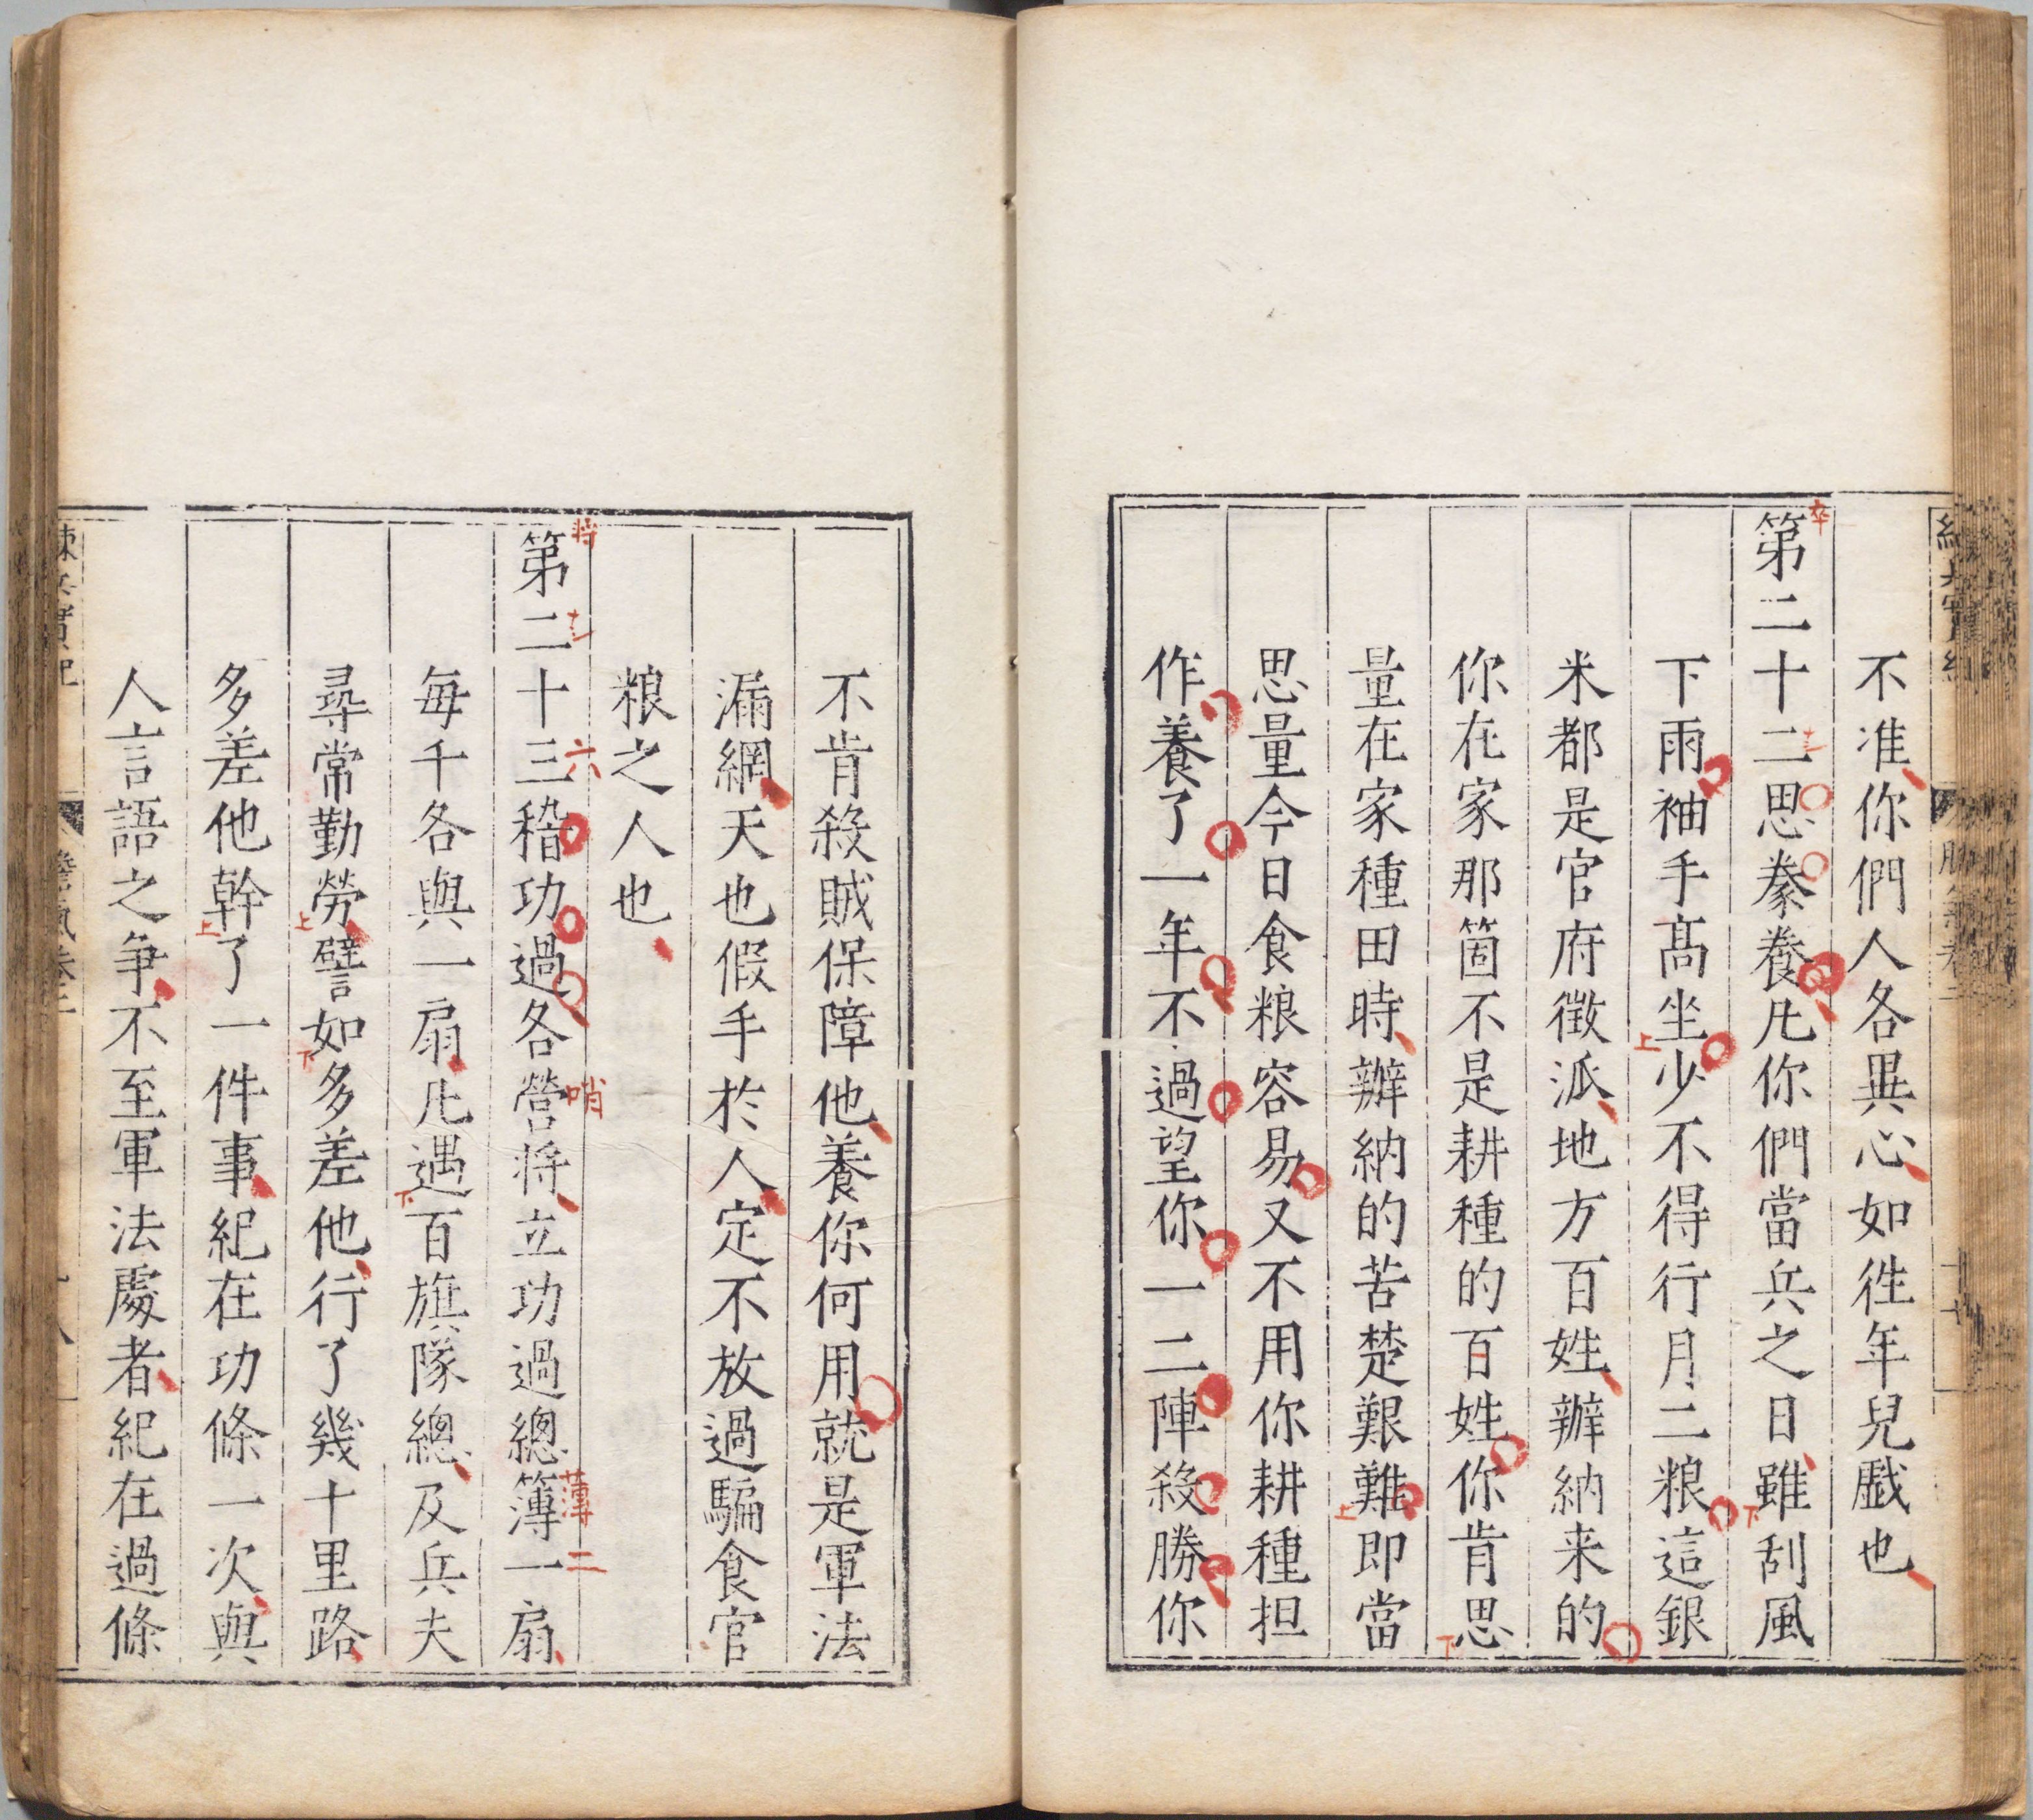 不准你們人各異心如徃年兒戱也
第二十二思豢養凡你們當兵之日雖刮風
下雨袖手髙坐少不得行月二粮這銀
米都是官府徵派地方百姓辦納来的
你在家那箇不是耕種的百姓你肯思
量在家種田時辦納的苦楚艱難即當
思量今日食粮容易又不用你耕種担
作養了一年不過望你一二陣殺勝你
不肯殺賊保障他養你何用就是軍法
漏網天也假手於人定不放過騙食官
粮之人也
第二十三稽功過各營将立功過總簿一扇
毎千各與一扇凡遇百旗隊總及兵夫
尋常勤勞譬如多差他行了幾十里路
多差他幹了一件事紀在功條一次與
人言語之争不至軍法處者紀在過條
卒
十二
上
下
上
下
将
十二
六
哨
薄
二
下
上
下
上